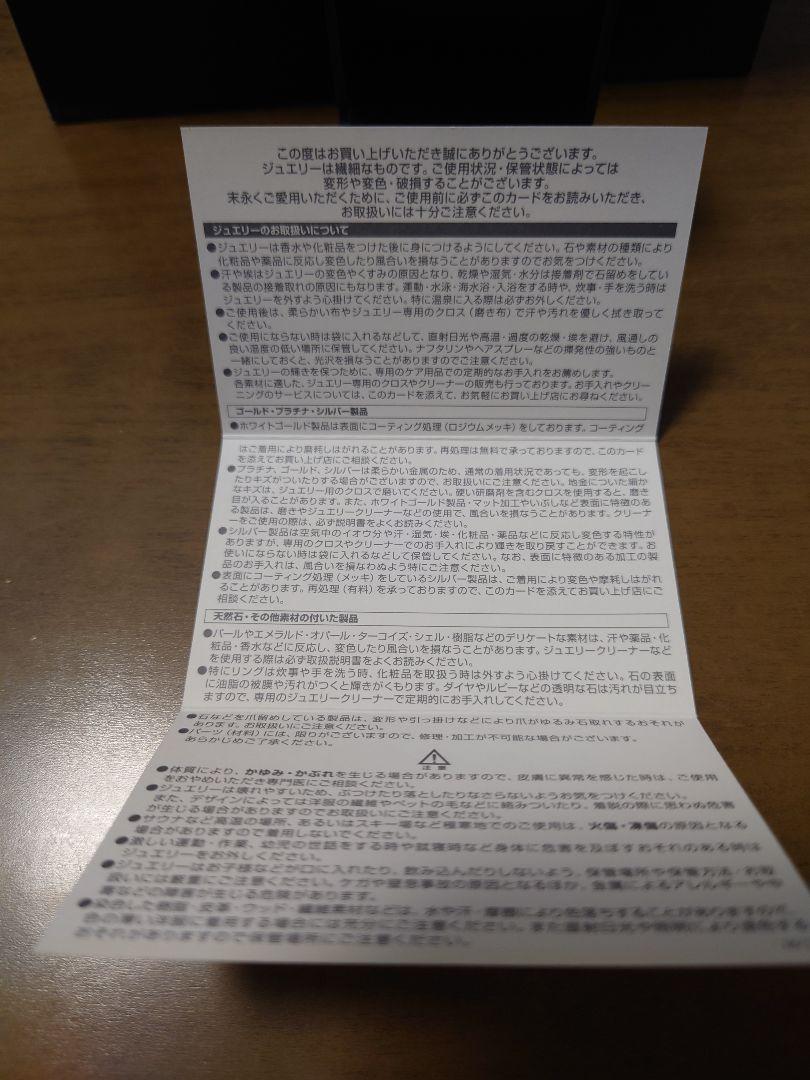 この度はお買い上げいただき誠にありがとうございます。
ジュエリーは繊細なものです。ご使用状況・保管状態によっては
変形や変色・破損することがございます。
末永くご愛用いただくために、ご使用前に必ずこのカードをお読みいただき、
お取扱いには十分ご注意ください。
ジュエリーのお取扱いについて
●ジュエリーは香水や化粧品をつけた後に身につけるようにしてください。石や素材の種類により
化粧品や薬品に反応し変色したり風合いを損なうことがありますのでお気をつけください。
●汗や埃はジュエリーの変色やくすみの原因となり、乾燥や湿気・水分は接着剤で石留めをしてい
る製品の接着取れの原因にもなります。運動・水泳・海水浴・入浴をする時や、炊事・手を洗う時は
ジュエリーを外すよう心掛けてください。特に温泉に入る際は必ずお外しください。
●ご使用後は、柔らかい布やジュエリー専用のクロス（磨き布）で汗や汚れを優しく拭き取って
ください。
●ご使用にならない時は袋に入れるなどして、直射日光や高温・過度の乾燥・埃を避け、風通しの
良い湿度の低い場所に保管してください。ナフタリンやヘアスプレーなどの揮発性の強いものと
一緒にしておくと、光沢を損なうことがありますのでご注意ください。
●ジュエリーの輝きを保つために、専用のケア用品での定期的なお手入れをお薦めします。
各素材に適した、ジュエリー専用のクロスやクリーナーの販売も行っております。お手入れやクリー
ニングのサービスについては、このカードを添えて、お気軽にお買い上げ店にお尋ねください。
ゴールド・プラチナ・シルバー製品
●ホワイトゴールド製品は表面にコーティング処理（ロジウムメッキ）をしております。コーティング
はご着用により磨耗しはがれることがあります。再処理は無料で承っておりますので、このカード
を添えてお買い上げ店にご相談ください。
●プラチナ、ゴールド、シルバーは柔らかい金属のため、通常の着用状況であっても、変形を起こし
たりキズがついたりする場合がございますので、お取扱いにご注意ください。地金についた細か
なキズは、ジュエリー用のクロスで磨いてください。硬い研磨剤を含むクロスを使用すると、磨き
目が入ることがあります。また、ホワイトゴールド製品・マット加工やいぶしなど表面に特徴のあ
る製品は、磨きやジュエリークリーナーなどの使用で、風合いを損なうことがあります。クリーナ
ーをご使用の際は、必ず説明書をよくお読みください。
●シルバー製品は空気中のイオウ分や汗・湿気・埃・化粧品・薬品などに反応し変色する特性が
ありますが、専用のクロスやクリーナーでのお手入れにより輝きを取り戻すことができます。お
使いにならない時は袋に入れるなどして保管してください。なお、表面に特徴のある加工の製
品のお手入れは、風合いを損なわぬよう特にご注意ください。
●表面にコーティング処理（メッキ）をしているシルバー製品は、ご着用により変色や摩耗しはがれ
ることがあります。再処理（有料）を承っておりますので、このカードを添えてお買い上げ店にご
相談ください。
天然石・その他素材の付いた製品
●パールやエメラルド・オパール・ターコイズ・シェル・樹脂などのデリケートな素材は、汗や薬品・化
粧品・香水などに反応し、変色したり風合いを損なうことがあります。ジュエリークリーナーなど
を使用する際は必ず取扱説明書をよくお読みください。
●特にリングは炊事や手を洗う時、化粧品を取扱う時は外すよう心掛けてください。石の表面
に油脂の被膜や汚れがつくと輝きがくもります。ダイヤやルビーなどの透明な石は汚れが目立ち
ますので、専用のジュエリークリーナーで定期的にお手入れしてください。
●石などを爪留めしている製品は、変形や引っ掛けなどにより爪がゆるみ石取れするおそれが
あります。お取扱いにご注意ください。
●パーツ（材料）には、限りがございますので、修理・加工が不可能な場合がございます。
あらかじめご了承ください。
注意
●体質により、かゆみ・かぶれを生じる場合がありますので、皮膚に異常を感じた時は、ご使用
をおやめいただき専門医にご相談ください。
●ジュエリーは壊れやすいため、ぶつけたり落としたりなさらないようお気をつけください。
また、デザインによっては洋服の繊維やペットの毛などに絡みついたり、着脱の際に思わぬ危害
が生じる場合がありますのでお取扱いにご注意ください。
●サウナなど高温の場所、あるいはスキー場など極寒地でのご使用は、火傷・凍傷の原因となる
場合がありますので着用しないでください。
●激しい運動・作業、幼児の世話をする時や就寝時など身体に危害を及ぼすおそれのある時は
ジュエリーをお外しください。
●ジュエリーはお子様などが口に入れたり、飲み込んだりしないよう、保管場所や保管方法・お取
扱いには厳重にご注意ください。ケガや窒息事故の原因となるほか、金属によるアレルギーや中
毒などの障害が生じる危険があります。
●染色した樹脂・皮革・ウッド・繊維素材などは、水や汗・摩擦により色落ちすることがありますので、
色の薄い洋服に着用する場合には充分にご注意ください。また直射日光や
おそれがありますので保管場所にご注意ください。